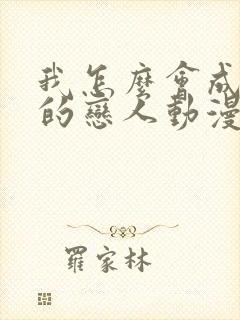 我怎麼會成
的戀人動漫
羅家林